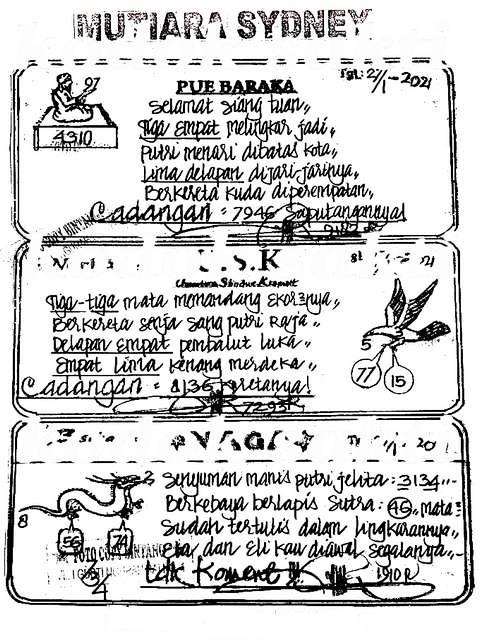 MUTIARA SYDNEY
PUE BARAKA
Tgl: 27/1-2021
97
4310
Selamat siang tuan,,
Tiga Empat melingkar jadi,,
Putri menari dibatas kota,,
Lima delapan dijari-jarinya,,
Berkereta kuda diperempatan,,
Cadangan = 7946 Saputangannya!
S.K
21
Tiga-tiga mata memandang Ekornya,,
Berkereta senja sang putri Raja,,
Delapan Empat pembalut luka,,
Empat Lima kenang merdeka,,
Cadangan = 1136 kretanya!
7293R
5
77
15
20
Senyuman manis putri jelita: 3134,,
Berkebaya berlapis Sutra: 46,, mata=
Sudah tertulis dalam lingkarannya,,
Eta, dan Eli kau diawal segalanya,,
tdk Koment
1910 R
2
8
56
74
2/4